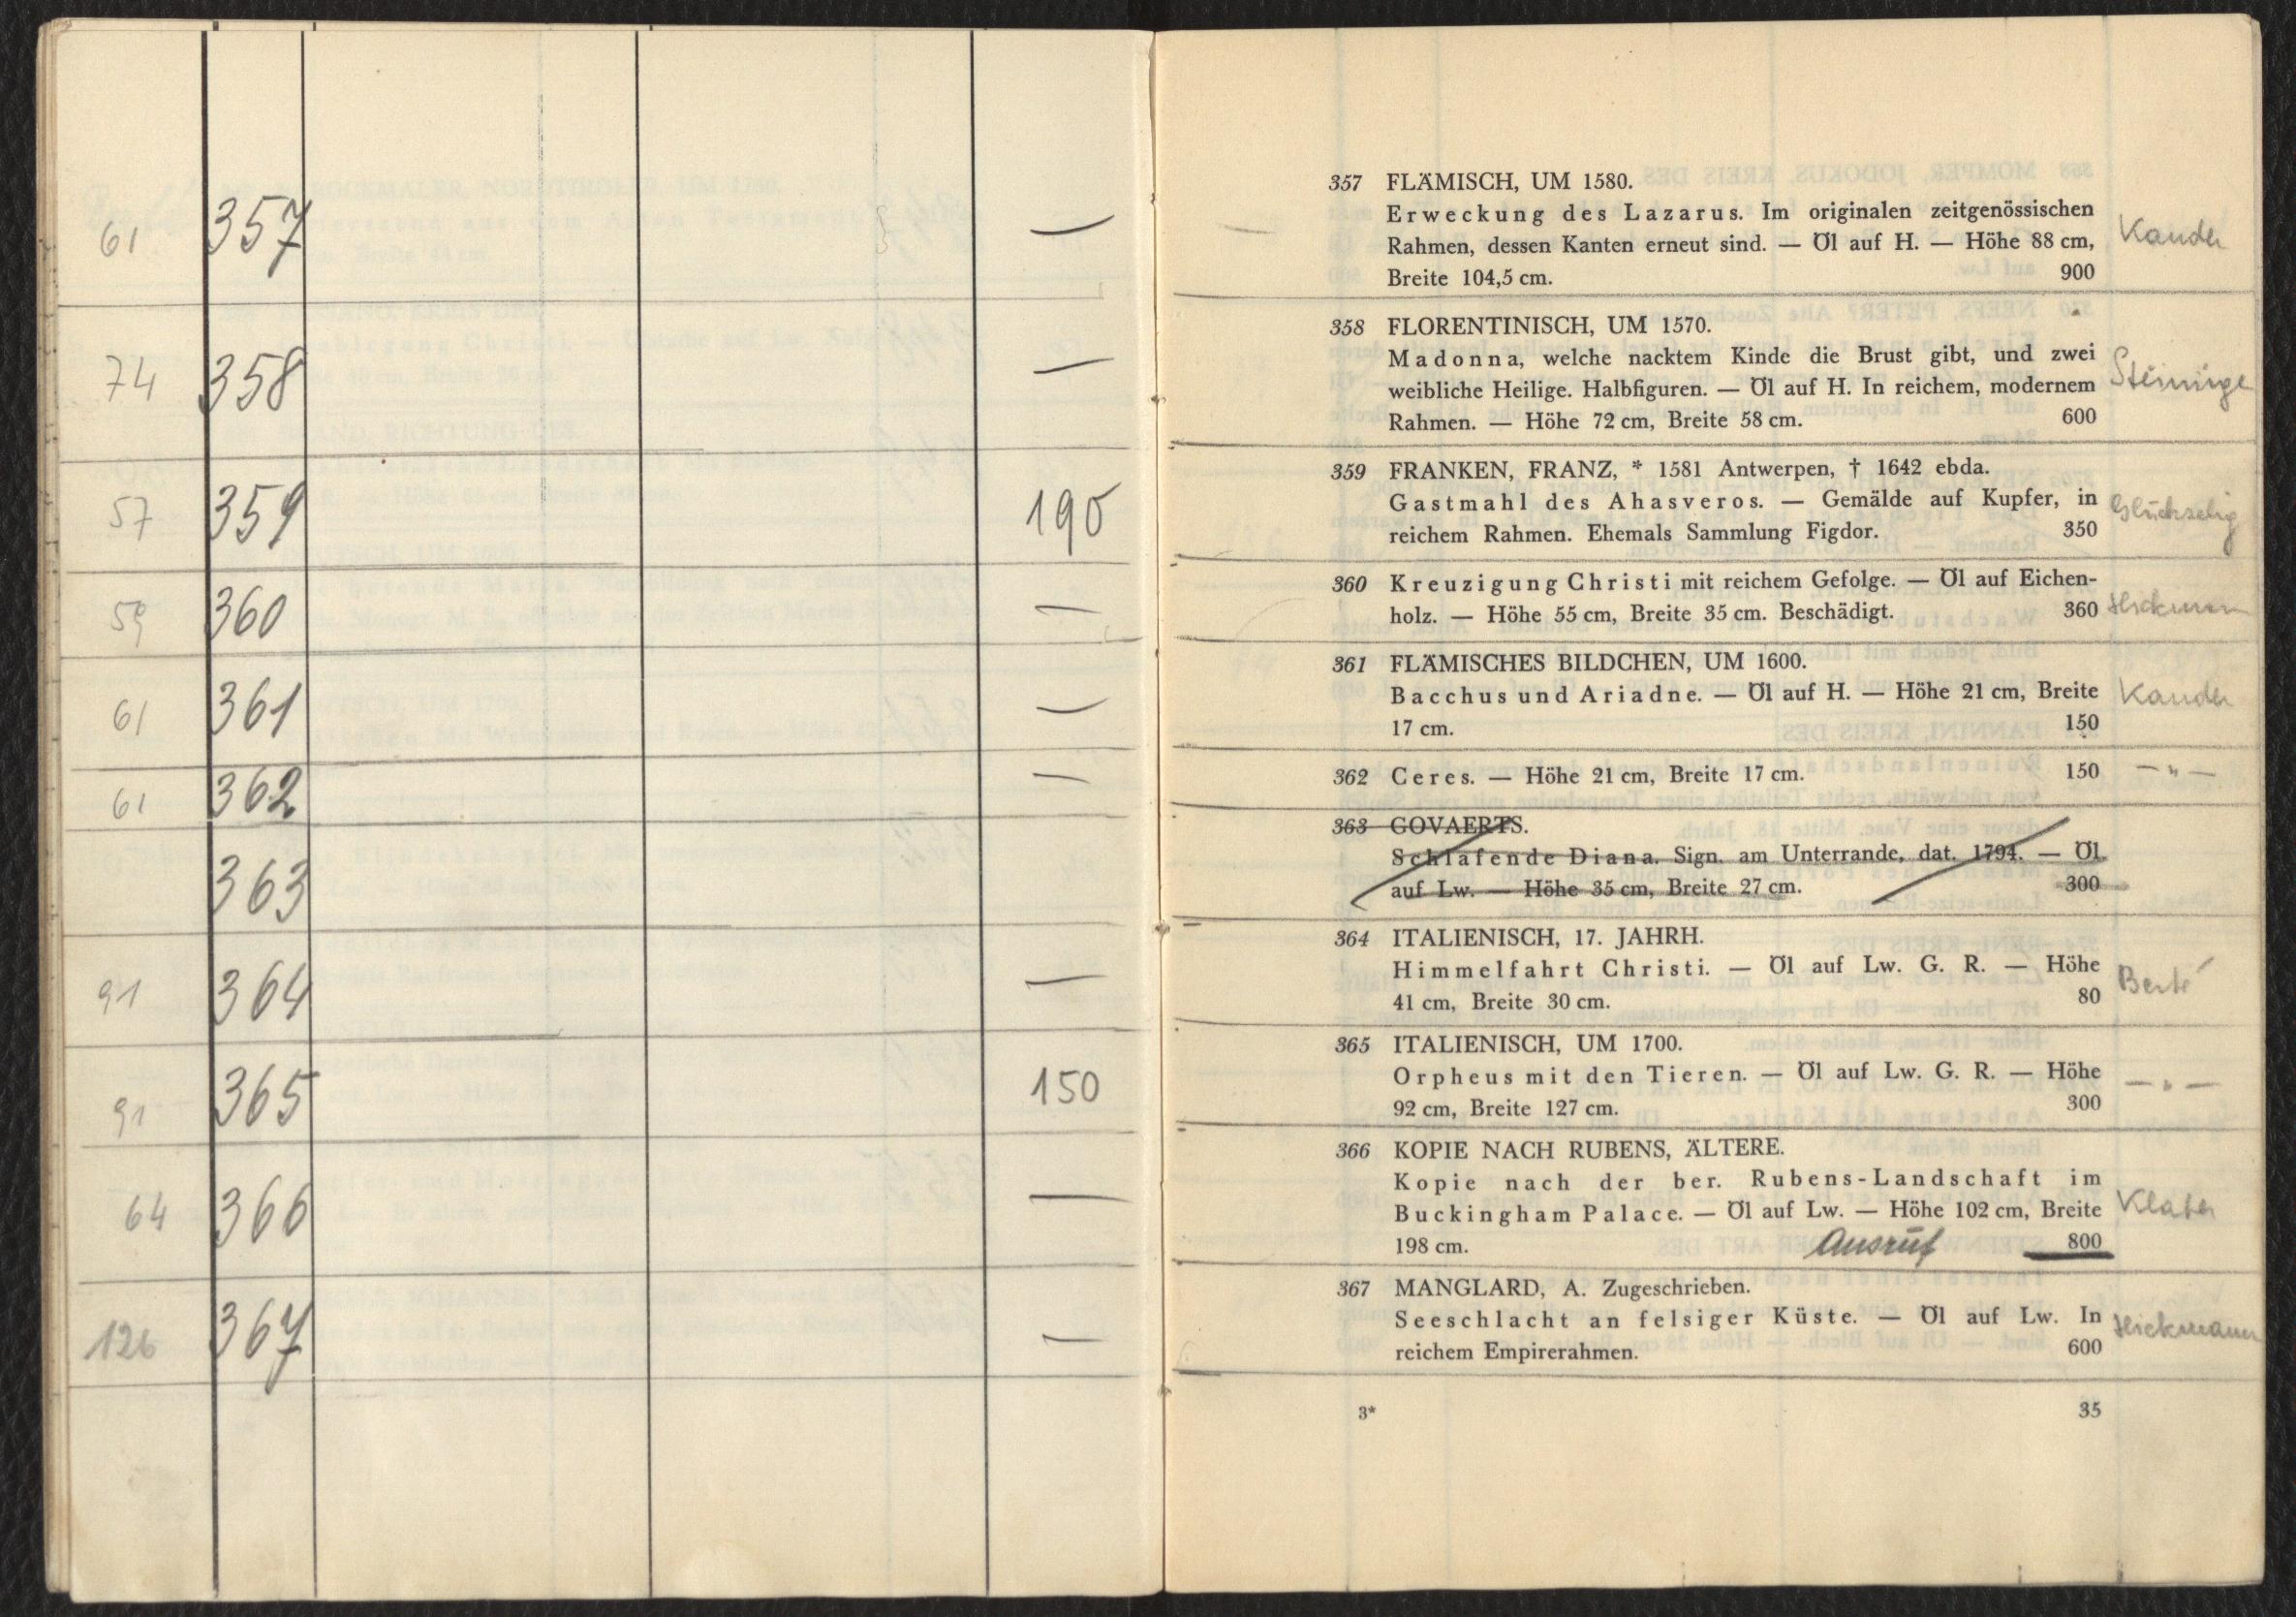 61 357 —
74 358 —
57 359 190
59 360 —
61 361 —
61 362 —
363
91 364 —
91 365 150
64 366 —
126 367 —
357 FLÄMISCH, UM 1580.
Erweckung des Lazarus. Im originalen zeitgenössischen
Rahmen, dessen Kanten erneut sind. — Öl auf H. — Höhe 88 cm,
Breite 104,5 cm. 900
358 FLORENTINISCH, UM 1570.
Madonna, welche nacktem Kinde die Brust gibt, und zwei
weibliche Heilige. Halbfiguren. — Öl auf H. In reichem, modernem
Rahmen. — Höhe 72 cm, Breite 58 cm. 600
359 FRANKEN, FRANZ, * 1581 Antwerpen, † 1642 ebda.
Gastmahl des Ahasveros. — Gemälde auf Kupfer, in Glückselig
reichem Rahmen. Ehemals Sammlung Figdor. 350
360 Kreuzigung Christi mit reichem Gefolge. — Öl auf Eichen-
holz. — Höhe 55 cm, Breite 35 cm. Beschädigt. 360
361 FLÄMISCHES BILDCHEN, UM 1600.
Bacchus und Ariadne. — Öl auf H. — Höhe 21 cm, Breite
17 cm. 150
362 Ceres. — Höhe 21 cm, Breite 17 cm. 150 — " —
363 GOVAERTS.
Schlafende Diana. Sign. am Unterrande, dat. 1794. — Öl
auf Lw. — Höhe 35 cm, Breite 27 cm. 300
364 ITALIENISCH, 17. JAHRH.
Himmelfahrt Christi. — Öl auf Lw. G. R. — Höhe
41 cm, Breite 30 cm. 80
365 ITALIENISCH, UM 1700.
Orpheus mit den Tieren. — Öl auf Lw. G. R. — Höhe
92 cm, Breite 127 cm. 300 — " —
366 KOPIE NACH RUBENS, ÄLTERE.
Kopie nach der ber. Rubens-Landschaft im
Buckingham Palace. — Öl auf Lw. — Höhe 102 cm, Breite
198 cm. Ausruf 800
367 MANGLARD, A. Zugeschrieben.
Seeschlacht an felsiger Küste. — Öl auf Lw. In
reichem Empirerahmen. 600
3* 35